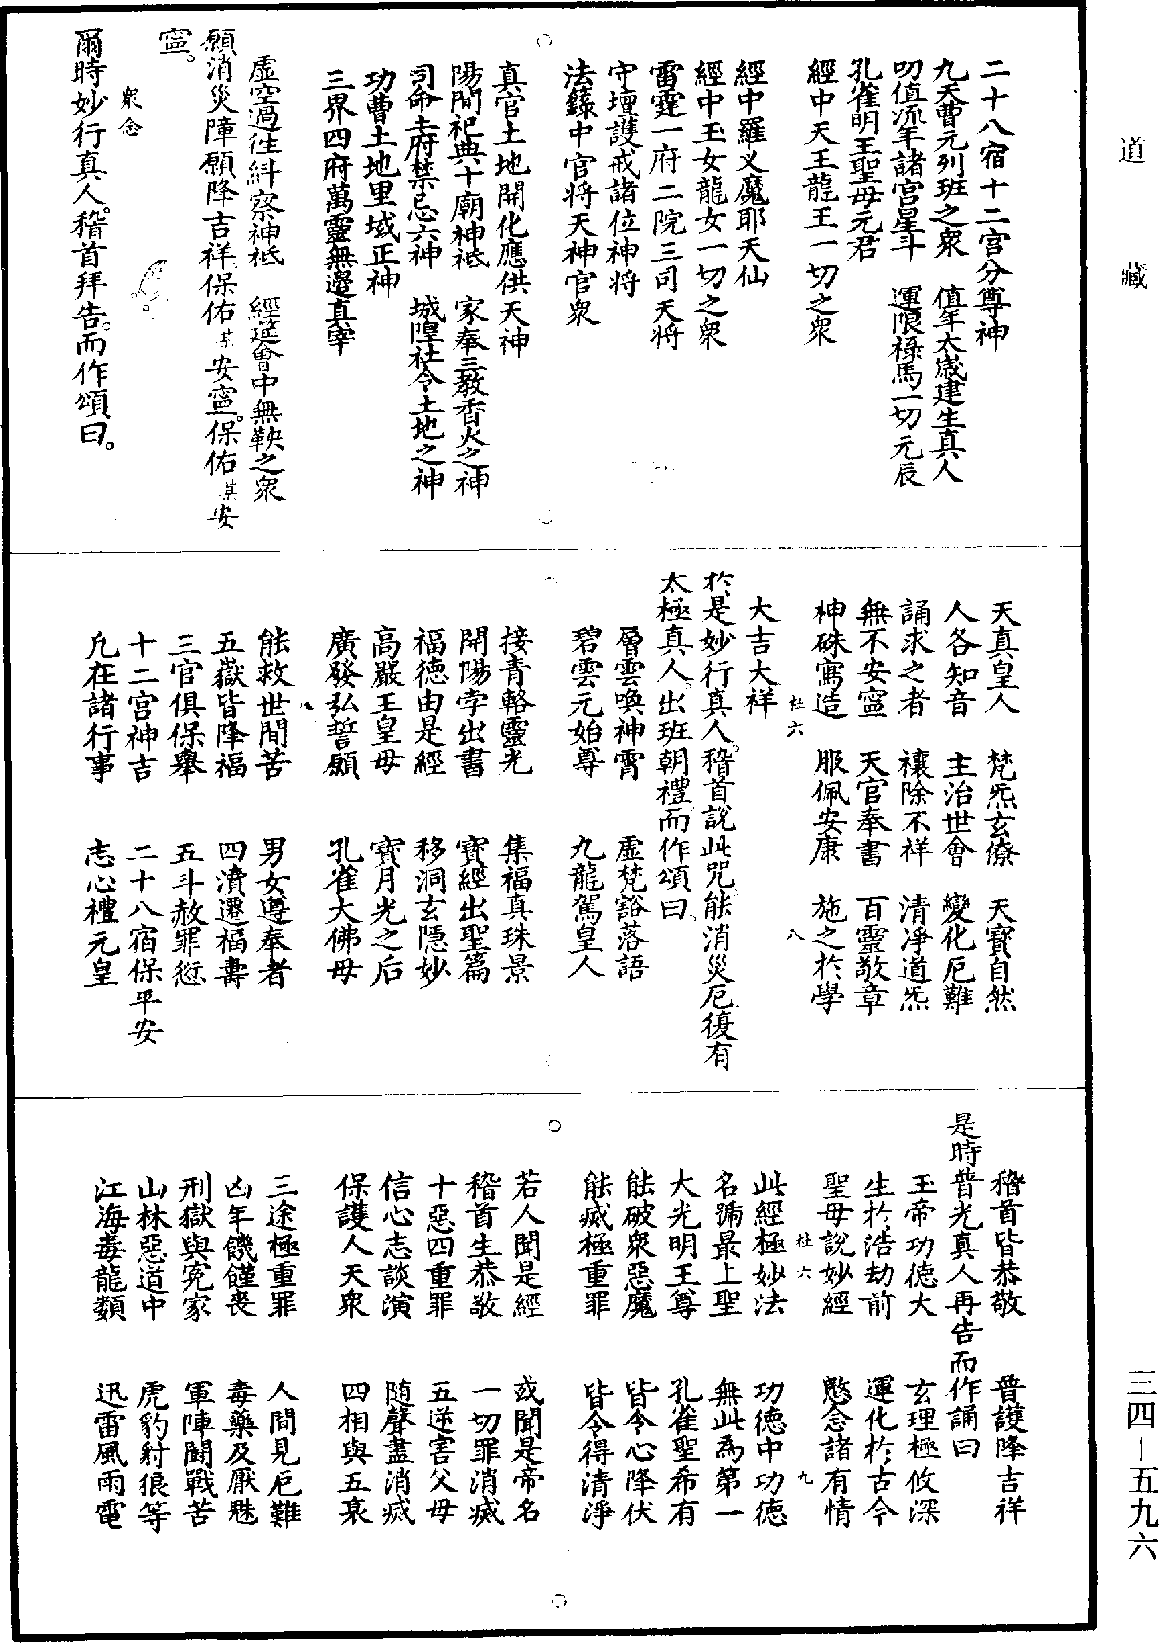 道藏
二十八宿十二宫分尊神
九天曹元列班之衆　值年太歲建生真人
叨值流年諸宫星斗　運限祿馬一切元辰
孔雀明王聖母元君
經中天王龍王一切之衆
經中羅义魔耶天仙
經中玉女龍女一切之衆
雷霆一府二院三司天將
守壇護戒諸位神將
法籙中官將天神官衆
真官土地開化應供天神
陽間祀典十廟神祗　家奉三教香火之神
司命土府禁忌六神　城隍社令土地之神
功曹土地里域正神
三界四府萬靈無邊真宰
虛空過往糾察神祗　經筵會中無鞅之衆
願消災障願降吉祥保佑某安寧。保佑某安
寧。
衆念
爾時妙行真人。稽首拜告。而作頌曰。
天真皇人　梵炁玄僚　天寶自然
人各知音　主治世會　變化厄難
誦求之者　禳除不祥　清凈道炁
無不安寧　天官奉書　百靈敬章
神硃寫造　服佩安康　施之於學
杜六　八
大吉大祥
於是妙行真人。稽首說此咒。能消災厄。復有
太極真人。出班朝禮。而作頌曰。
層雲喚神霄　虛梵谿落語
碧雲元始尊　九龍駕皇人
接青輅靈光　集福真珠景
開陽孛出書　寶經出聖篇
福德由是經　移洞玄隱妙
高嚴王皇母　寶月光之后
廣發弘誓願　孔雀大佛母
能救世間苦　男女遵奉者
五嶽皆降福　四瀆遷福壽
三官俱保舉　五斗赦罪愆
十二宫神吉　二十八宿保平安
凢在諸行事　志心禮元皇
稽首皆恭敬　普護降吉祥
是時普光真人再告而作誦曰
玉帝功德大　玄理極攸深
生於浩劫前　運化於古今
聖母說妙經　慜念諸有情
杜六　九
此經極妙法　功德中功德
名號最上聖　無此為第一
大光明王尊　孔雀聖希有
能破衆惡魔　皆令心降伏
能滅極重罪　皆令得清淨
若人聞是經　或聞是帝名
稽首生恭敬　一切罪消滅
十惡四重罪　五逆害父母
信心志談演　随聲盡消滅
保護人天衆　四相與五衰
三途極重罪　人間見厄難
凶年饑饉喪　毒藥及厭魅
刑獄與冤家　軍陣鬪戰苦
山林惡道中　虎豹豺狼等
江海毒龍類　迅雷風雨電
三四－五九六